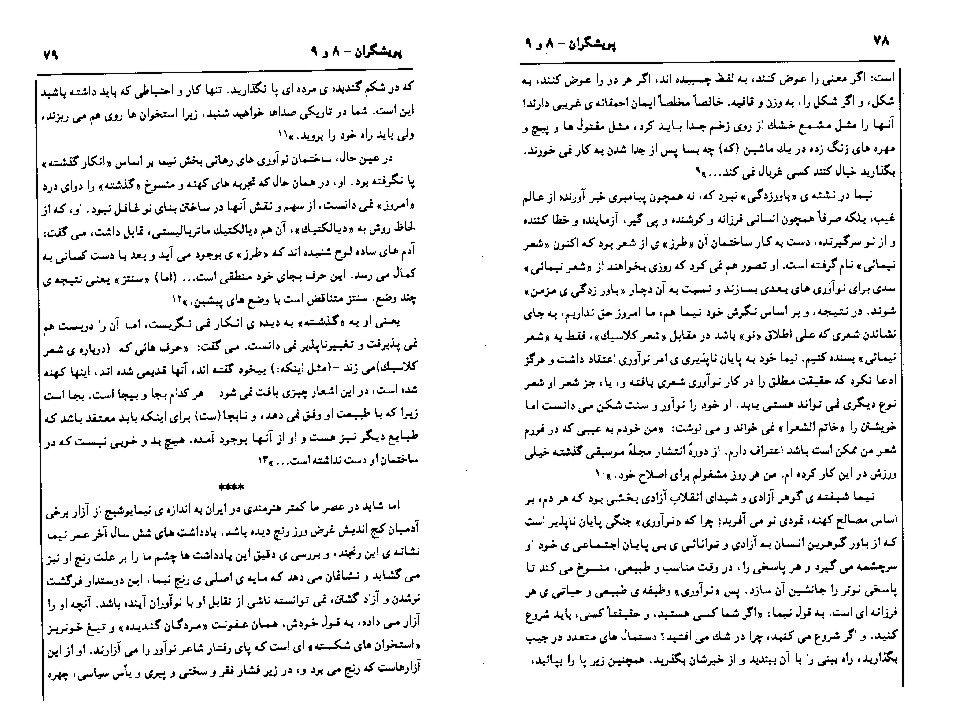 ۷۸ پویشگران - ۸ و ۹
است: اگر معنی را عوض کنند، به لفظ چسبیده اند، اگر هر دو را عوض کنند، به
شکل، و اگر شکل را، به وزن و قافیه. خالصاً مخلصاً ایمان احمقانه ی غریبی دارند!
آنها را مثل مشمع خشک از روی زخم جدا باید کرد، مثل مفتول ها و پیچ و
مهره های زنگ زده در یك ماشین (که) چه بسا پس از جدا شدن به کار نمی خورند.
بگذارید خیال کنند کسی غربال نمی کند...»۹
نیما در نشئه ی «باورزدگی» نبود که، نه همچون پیامبری خبر آورنده از عالم
غیب، بلکه صرفاً همچون انسانی فرزانه و کوشنده و پی گیر، آزماینده و خطا کننده
و از نو سرگیرنده، دست به کار ساختمان آن «طرز» ی از شعر بود که اکنون «شعر
نیمائی» نام گرفته است. او تصور هم نمی کرد که روزی بخواهند از «شعر نیمائی»
سدی برای نوآوری های بعدی بسازند و نسبت به آن دچار «باور زدگی ی مزمن»
شوند. در نتیجه، و بر اساس نگرش خود نیما هم، ما امروز حق نداریم، به جای
نشاندن شعری که علی اطلاق «نو» باشد در مقابل «شعر کلاسیك»، فقط به «شعر
نیمائی» بسنده کنیم. نیما خود به پایان ناپذیری ی امر نوآوری اعتقاد داشت و هرگز
ادعا نکرد که حقیقت مطلق را در کار نوآوری شعری یافته و، یا، جز شعر او شعر
نوع دیگری نمی تواند هستی یابد. او خود را نوآور و سنت شکن می دانست اما
خویشتن را «خاتم الشعرا» نمی خواند و می نوشت: «من خودم به عیبی که در فورم
شعر من ممکن است باشد اعتراف دارم. از دورهٔ انتشار مجلهٔ موسیقی گذشته خیلی
ورزش در این کار کرده ام. من هر روز مشغولم برای اصلاح خود.»۱۰
نیما شیفته ی گوهر آزادی و شیدای انقلاب آزادی بخشی بود که هر دم، بر
اساس مصالح کهنه، نمودی نو می آفرید؛ چرا که «نوآوری» جنگی پایان ناپذیر است
که از باور گوهرین انسان به آزادی و توانائی ی بی پایان اجتماعی ی خود او
سرچشمه می گیرد و هر پاسخی را، در وقت مناسب و طبیعی، منسوخ می کند تا
پاسخی نوتر را جانشین آن سازد. پس «نوآوری» وظیفه ی طبیعی و حیاتی ی هر
فرزانه ای است. به قول نیما: «اگر شما کسی هستید، و حقیقتاً کسی، باید شروع
کنید. و اگر شروع می کنید، چرا در شك می افتید؟ دستمال های متعدد در جیب
بگذارید، راه بینی را با آن ببندید و از خیرشان بگذرید. همچنین زیر پا را بپائید،
پویشگران - ۸ و ۹ ۷۹
که در شکم گندیده ی مرده ای پا نگذارید. تنها کار و احتیاطی که باید داشته باشید
این است. شما در تاریکی صداها خواهید شنید، زیرا استخوان ها روی هم می ریزند،
ولی باید راه خود را بروید.»۱۱
در عین حال، ساختمان نوآوری های رهائی بخش نیما بر اساس «انکار گذشته»
پا نگرفته بود. او، در همان حال که تجربه های کهنه و منسوخ «گذشته» را دوای درد
«امروز» نمی دانست، از سهم و نقش آنها در ساختن بنای نو غافل نبود. او، که از
لحاظ روش به «دیالکتیك»، آن هم دیالکتیك ماتریالیستی، تمایل داشت، می گفت:
آدم های ساده لوح شنیده اند که «طرز» ی بوجود می آید و بعد با دست کسانی به
کمال می رسد. این حرف بجای خود منطقی است... (اما) «سنتز» یعنی نتیجه ی
چند وضع. سنتز متناقض است با وضع های پیشین.»۱۲
یعنی او به «گذشته» به دیده ی انکار نمی نگریست، اما آن را دربست هم
نمی پذیرفت و تغییرناپذیر نمی دانست. می گفت: «حرف هائی که (درباره ی شعر
کلاسیك) می زند - (مثل اینکه:) بیخود گفته اند، آنها قدیمی شده اند، اینها کهنه
شده است، در این اشعار چیزی یافت نمی شود هر کدام بجا و بیجا است. بجا است
زیرا که با طبیعت او وفق نمی دهد، و نابجا (ست) برای اینکه باید معتقد باشد که
طبایع دیگر نیز هست و او از آنها بوجود آمده. هیچ بد و خوبی نیست که در
ساختمان او دست نداشته است...»۱۳
****
اما شاید در عصر ما کمتر هنرمندی در ایران به اندازه ی نیمایوشیج از آزار برخی
آدمیان کج اندیش غرض ورز رنج دیده باشد. یادداشت های شش سال آخر عمر نیما
نشانه ی این رنجند، و بررسی ی دقیق این یادداشت ها چشم ما را بر علت رنج او نیز
می گشاید و نشانمان می دهد که مایه ی اصلی ی رنج نیما، این دوستدار فرگشت
نوشدن و آزاد گشتن، نمی توانسته ناشی از تقابل او با نوآوران آینده باشد. آنچه او را
آزار می داده، به قول خودش، همان عفونت «مردگان گندیده» و تیغ خونریز
«استخوان های شکسته» ای است که پای رفتار شاعر نوآور را می آزارند. او از این
آزارهاست که رنج می برد و، در زیر فشار فقر و سختی و پیری و یأس سیاسی، چهره